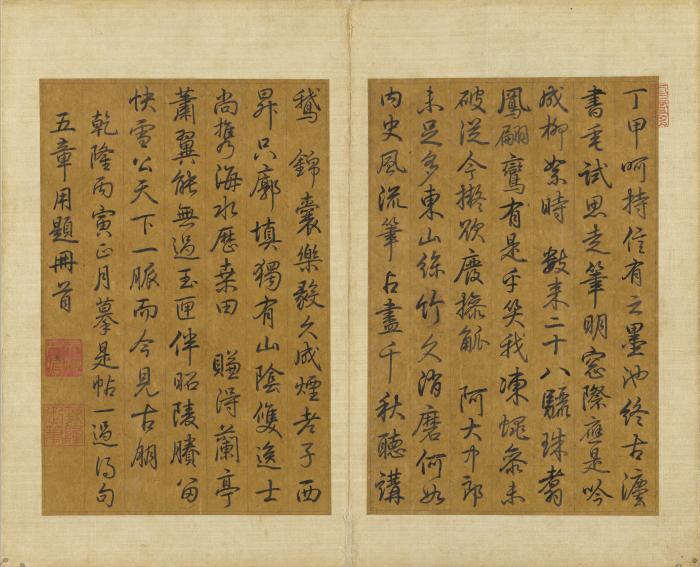 丁甲呵持信有之墨池終古
書垂試思走筆明窗際應是吟
成柳絮時 數來二十八驪珠翥
鳳翩鸞有是乎笑我凍蠅參未
破從今擬欲廢操觚 阿大中郎
未足多東山絲竹久消磨何如
內史風流筆占盡千秋聽講
鵞 錦囊樂毅久成煙老子西
昇只廓填獨有山陰雙逸士
尚攜海水歷桑田 賺得蘭亭
蕭翼能無過玉匣伴昭陵賸留
快雪公天下一脈而今見古朋
乾隆丙寅正月摹是帖一過得句
五章用題冊首